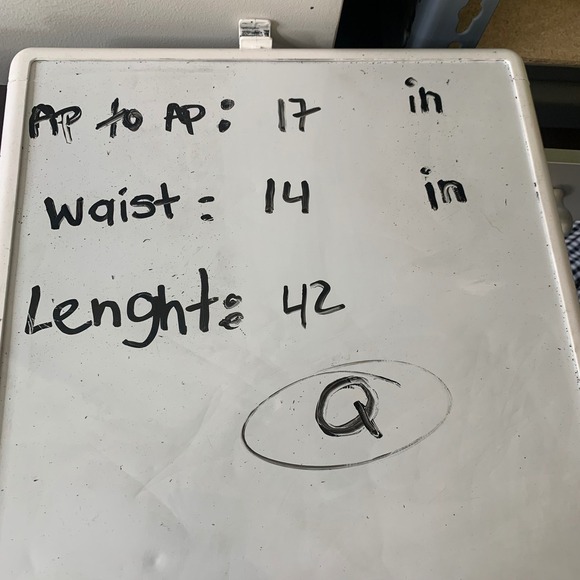 AP to AP: 17 in
Waist: 14 in
Lenght: 42
Q